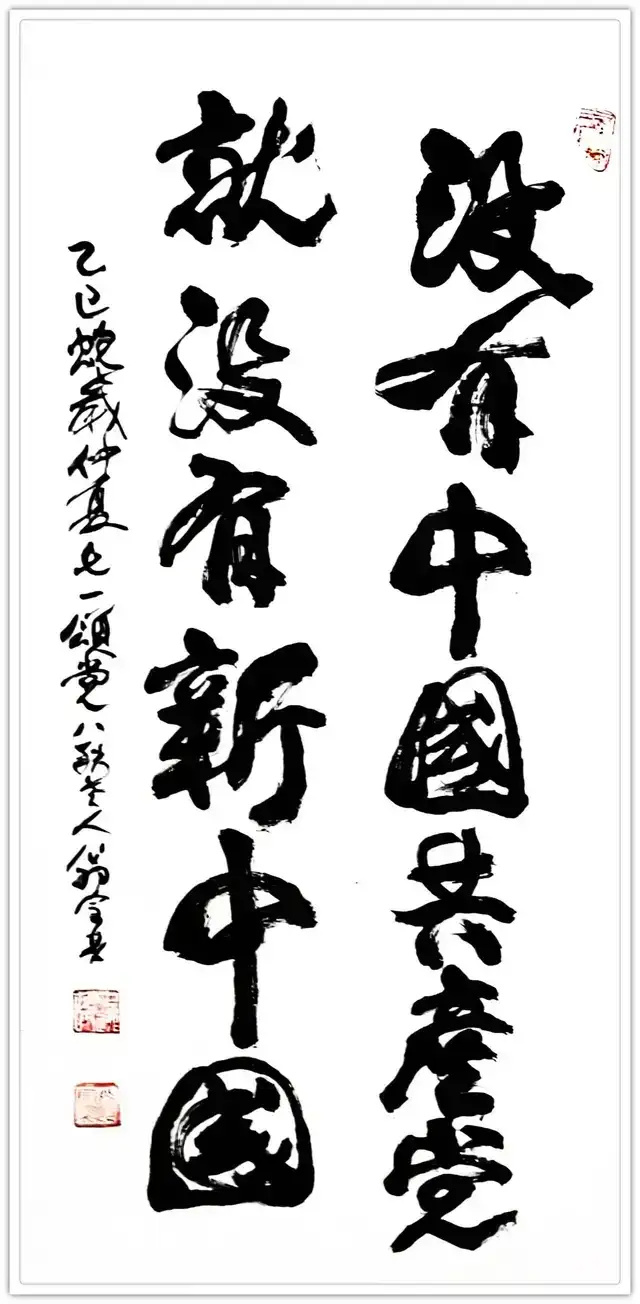 没有中國共產党
就没有新中國
乙巳蛇歲仲夏七一頌党八秩老人翁